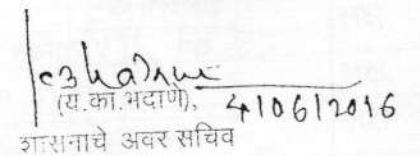 (य.का.भदाणे),
4/06/2016
शासनाचे अवर सचिव